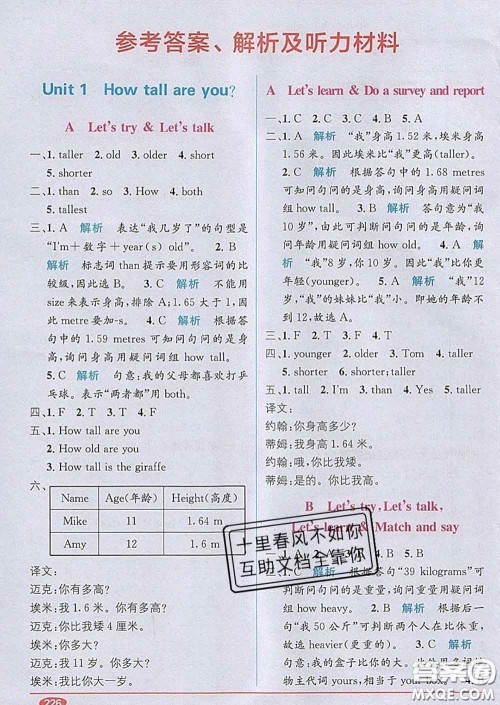 参考答案、解析及听力材料
Unit 1 How tall are you?
A Let's try & Let's talk
一、1. taller 2. old 3. older 4. short
5. shorter
二、1. than 2. so 3. How 4. both
5. tallest
三、1. A 解析 表达“我几岁了”的句型是
“I'm+数字+year(s) old”。 2. B
解析 标志词 than 提示要用形容词的比
较级,因此选 B。 3. C 解析 不能用
size 来表示身高,排除 A;1.65 大于 1,因
此 metre 要加-s。 4. C 解析 根据答
句中的 1.59 metres 可知问句问的是身
高,询问身高用疑问词组 how tall。
5. C 解析 句意:我的父母都喜欢打乒
乓球。表示“两者都”用 both。
四、1. F 2. T 3. F 4. T
五、1. How tall are you
2. How old are you
3. How tall is the giraffe
六、
Name Age(年龄) Height(高度)
Mike 11 1.64 m
Amy 12 1.6 m
译文:
迈克:你有多高?
埃米:我 1.6 米。你有多高?
迈克:你比我矮 4 厘米。
埃米:你多大?
迈克:我 11 岁。你多大?
埃米:我比你大一岁。
226
A Let's learn & Do a survey and report
一、1. C 2. A 3. B 4. C 5. C
二、1. A 解析 “我”身高 1.52 米,埃米身高
1.56 米。因此埃米比“我”更高(taller)。
2. C 解析 根据答句中的 1.68 metres
可知问句问的是身高,询问身高用疑问词
组 how tall。 3. B 解析 答句意为“我
10 岁”,由此可判断问句问的是年龄,询
问年龄用疑问词组 how old。 4. A
解析 “我”8 岁,“你”10 岁。因此“我”比你
年轻(younger)。 5. A 解析 “我”12
岁,“我”的妹妹比“我”小。即她的年龄不
到 12 岁,因此选 A。
三、1. F 2. T 3. T 4. F
四、1. younger 2. older 3. Tom 4. taller
5. shorter 6. shorter; taller
五、1. tall 2. I'm 3. than 4. Yes 5. taller
译文:
约翰:你身高多少?
蒂姆:我身高 1.64 米。
约翰:哦,你比我矮。
蒂姆:是的。你比我高。
B Let's try, Let's talk,
Let's learn & Match and say
一、1. C 解析 根据答句“39 kilograms”可
可判断问句问的是体重,询问体重用疑问词
组 how heavy。 2. B 解析 根据后一
句“我 50 公斤”可判断两个人在比体重,
故选 heavier(更重的)。 3. C 解析 句
意:我的盒子比你的大。此处用名词性的
物主代词 yours,相当于 your box。 4. A
十里春风不如你
互助文档全靠你
答案圈
MXQE.COM